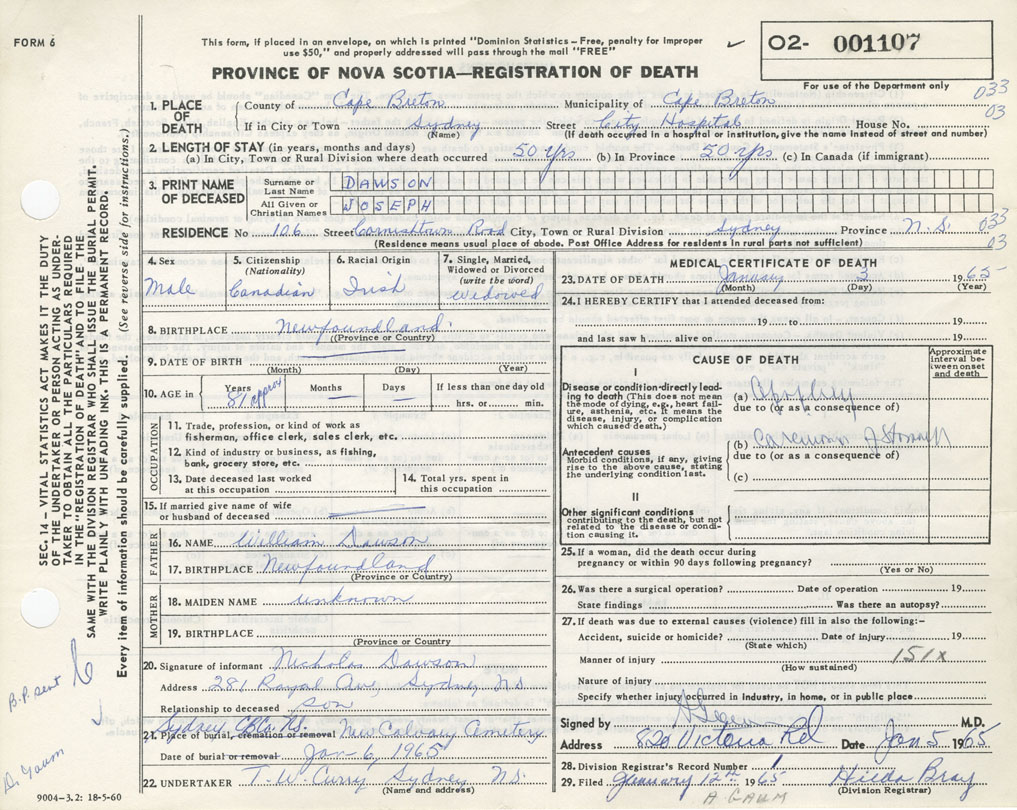 FORM 6
This form, if placed in an envelope, on which is printed "Dominion Statistics – Free, penalty for improper
use $50," and properly addressed will pass through the mail "FREE"
02- 001107
For use of the Department only
PROVINCE OF NOVA SCOTIA—REGISTRATION OF DEATH
033
03
1. PLACE OF DEATH
County of Cape Breton Municipality of Cape Breton
If in City or Town Sydney Street City Hospital House No.
(Name) (If death occurred in a hospital or institution, give the name instead of street and number)
2. LENGTH OF STAY (in years, months and days)
(a) In City, Town or Rural Division where death occurred 50 yrs (b) In Province 50 yrs (c) In Canada (if immigrant)
3. PRINT NAME OF DECEASED
Surname or Last Name DAWSON
All Given or Christian Names JOSEPH
RESIDENCE No 106 Street Cornishtown Road City, Town or Rural Division Sydney Province N.S.
(Residence means usual place of abode. Post Office Address for residents in rural parts not sufficient)
033
03
4. Sex
Male
5. Citizenship
(Nationality)
Canadian
6. Racial Origin
Irish
7. Single, Married,
Widowed or Divorced
(write the word)
Widowed
8. BIRTHPLACE Newfoundland
(Province or Country)
9. DATE OF BIRTH
(Month) (Day) (Year)
10. AGE in
Years 81 approx
Months —
Days —
If less than one day old
hrs. or min.
OCCUPATION
11. Trade, profession, or kind of work as
fisherman, office clerk, sales clerk, etc.
12. Kind of industry or business, as fishing,
bank, grocery store, etc.
13. Date deceased last worked
at this occupation
14. Total yrs. spent in
this occupation
15. If married give name of wife
or husband of deceased
FATHER
16. NAME William Dawson
17. BIRTHPLACE Newfoundland
(Province or Country)
MOTHER
18. MAIDEN NAME unknown
19. BIRTHPLACE
(Province or Country
20. Signature of informant Nicholas Dawson
Address 281 Royal Ave, Sydney N.S.
Relationship to deceased son
Sydney N.S.
21. Place of burial, cremation or removal New Calvary Cemetery
Date of burial or removal Jan-6, 1965
22. UNDERTAKER T. W. Curry Sydney N.S.
(Name and address)
9004-3.2: 18-5-60
MEDICAL CERTIFICATE OF DEATH
23. DATE OF DEATH January 3 1965
(Month) (Day) (Year)
24. I HEREBY CERTIFY that I attended deceased from:
19 to 19
and last saw h alive on 19
CAUSE OF DEATH
Approximate
interval be-
tween onset
and death
I
Disease or condition directly lead-
ing to death (This does not mean
the mode of dying, e.g., heart failure,
asthenia, etc. It means the
disease, injury, or complication
which caused death.)
(a) Apoplexy
due to (or as a consequence of)
Antecedent causes
Morbid conditions, if any, giving
rise to the above cause, stating
the underlying condition last.
(b) Carcinoma of Stomach
due to (or as a consequence of)
(c)
II
Other significant conditions
contributing to the death, but not
related to the disease or condi-
tion causing it.
25. If a woman, did the death occur during
pregnancy or within 90 days following pregnancy?
(Yes or No)
26. Was there a surgical operation? Date of operation 19
State findings Was there an autopsy?
27. If death was due to external causes (violence) fill in also the following:–
Accident, suicide or homicide? Date of injury 19
(State which)
Manner of injury 151X
(How sustained)
Nature of injury
Specify whether injury occurred in industry, in home, or in public place
Signed by M.D.
Address 820 Victoria Rd Date Jan 5 1965
28. Division Registrar's Record Number 1
29. Filed January 12th 1965 Hilda Bray
(Division Registrar)
A GAUM
SEC. 14 – VITAL STATISTICS ACT MAKES IT THE DUTY
OF THE UNDERTAKER OR PERSON ACTING AS UNDER-
TAKER TO OBTAIN ALL THE PARTICULARS REQUIRED
IN THE "REGISTRATION OF DEATH" AND TO FILE THE
SAME WITH THE DIVISION REGISTRAR WHO SHALL ISSUE THE BURIAL PERMIT.
WRITE PLAINLY WITH UNFADING INK. THIS IS A PERMANENT RECORD.
Every item of information should be carefully supplied. (See reverse side for instructions.)
B.P. sent
Dr. Gaum